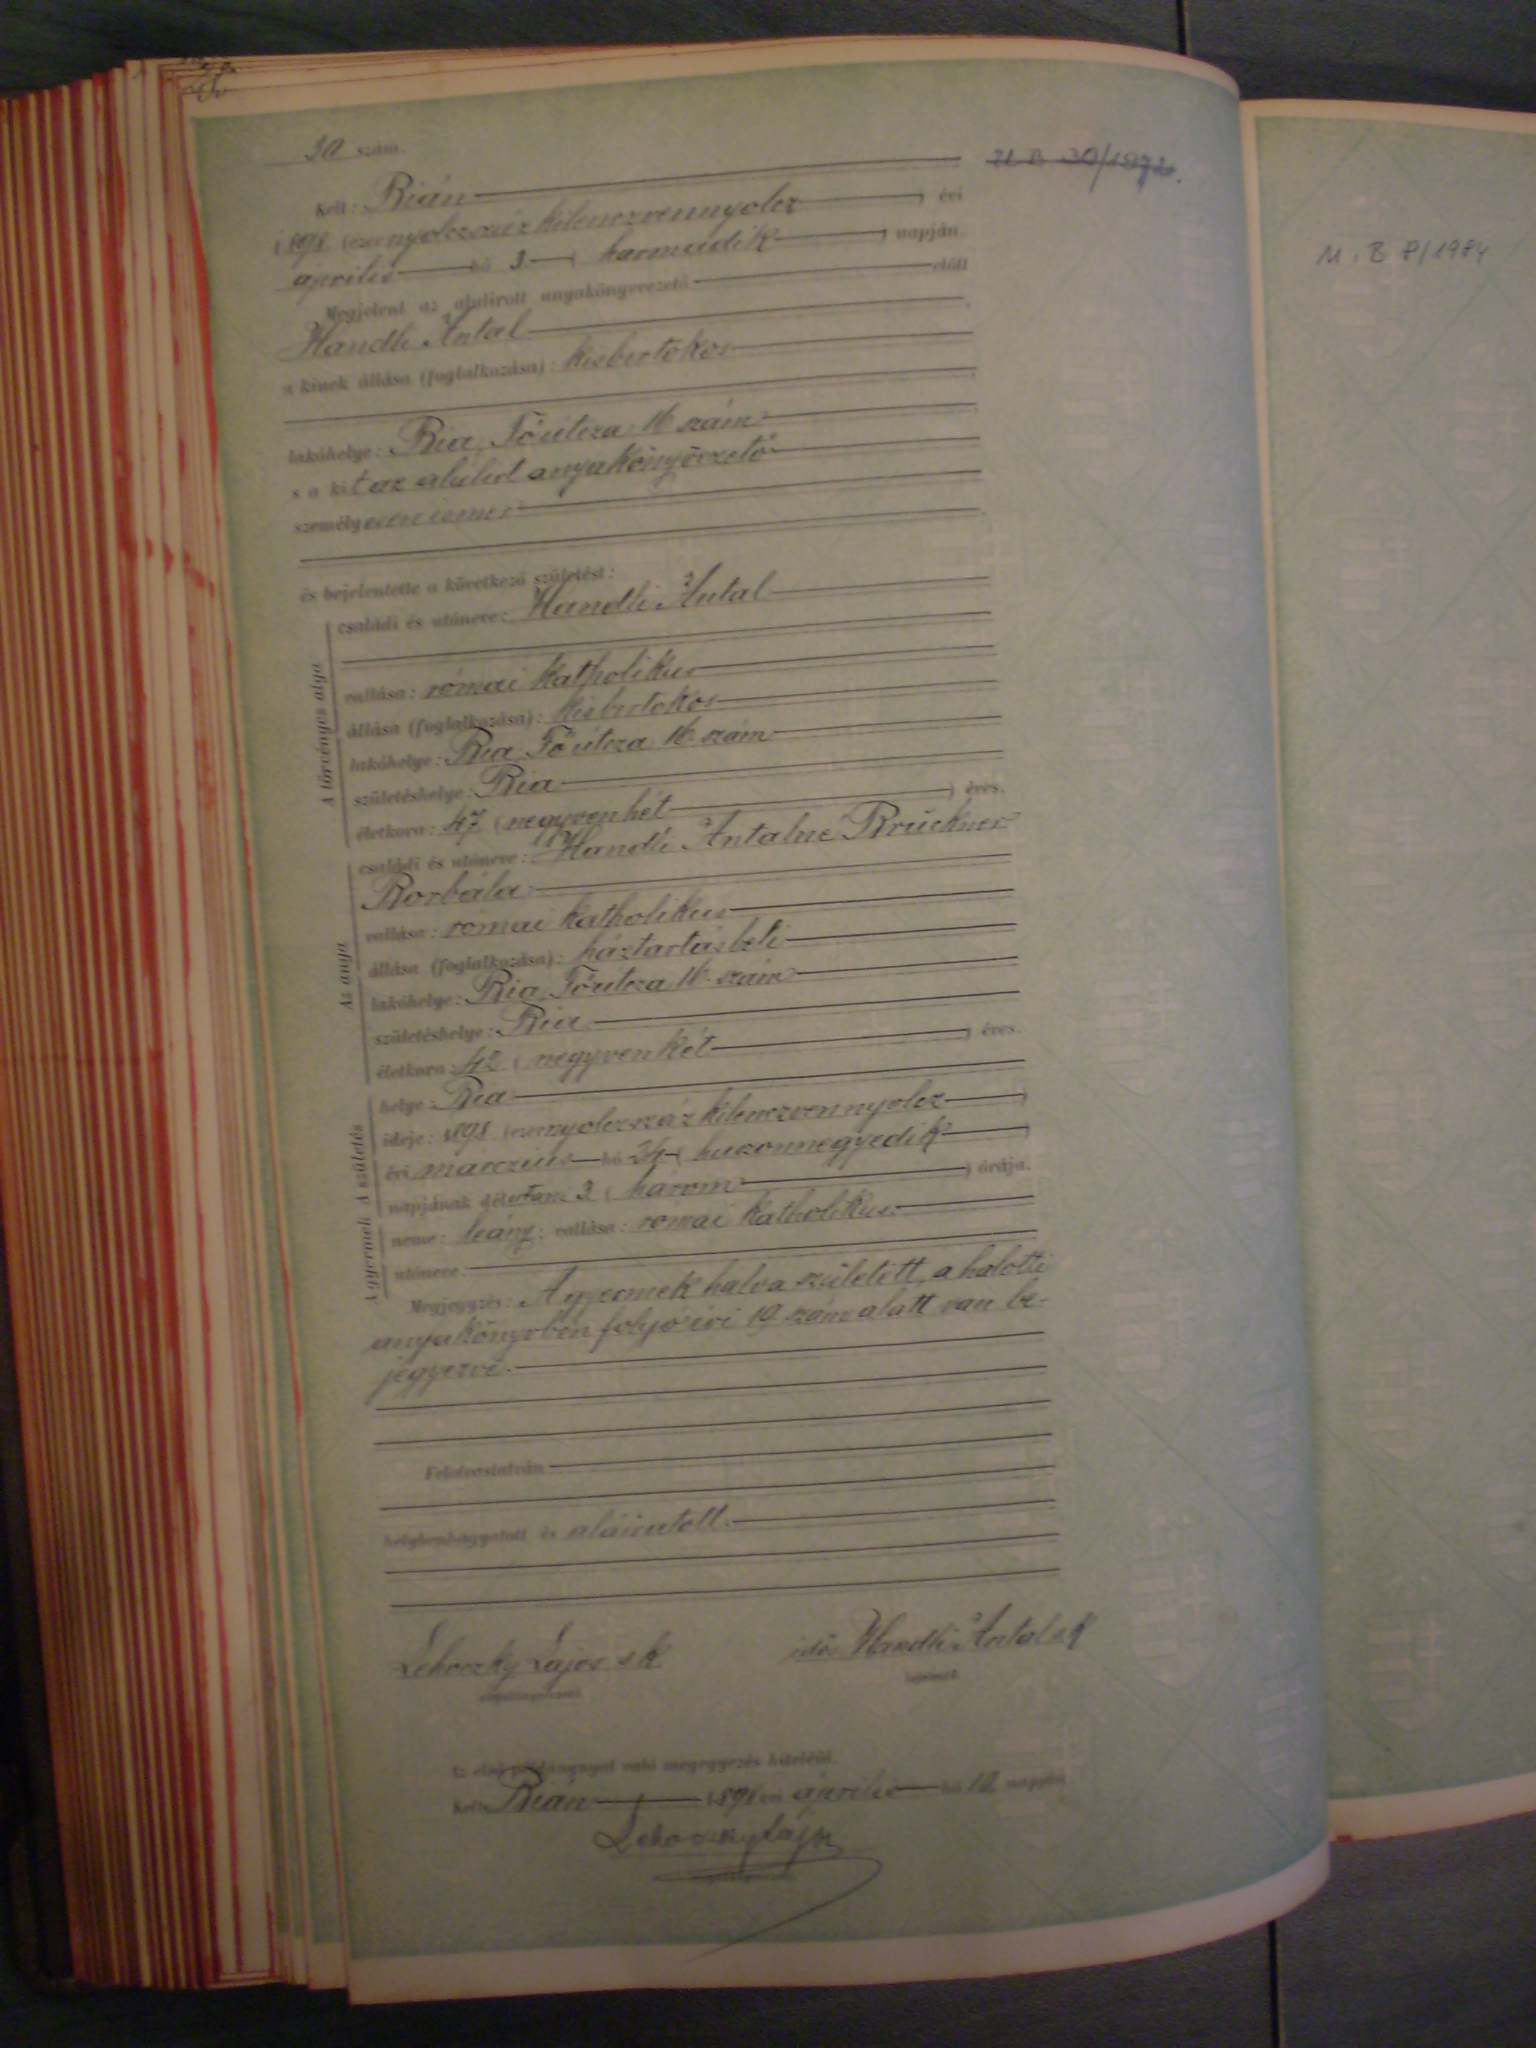 30 szám.
Kelt: Bián
1898 (ezernyolczszáz kilenczvennyolcz) évi
április hó 3. ( harmadik ) napján.
Megjelent az alulirott anyakönyvvezető előtt
Handli Antal
a kinek állása (foglalkozása): kisbirtokos
lakóhelye: Bia, Főutcza 16 szám
s a kit az alulirt anyakönyvvezető
személyesen ismer
és bejelentette a következő születést:
A törvényes atya
családi és utóneve: Handli Antal
vallása: római katholikus
állása (foglalkozása): kisbirtokos
lakóhelye: Bia Főutcza 16. szám
születéshelye: Bia
életkora: 47 ( negyvenhét ) éves.
Az anya
családi és utóneve: Handli Antalné Brückner
Borbála
vallása: római katholikus
állása (foglalkozása): háztartásbeli
lakóhelye: Bia Főutcza 16. szám
születéshelye: Bia
életkora: 42 ( negyvenkét ) éves.
A születés
helye: Bia
ideje: 1898 (ezernyolczszáz kilenczvennyolcz )
évi márczius hó 24 ( huszonnegyedik )
napjának délutáni 3 ( három ) órája.
A gyermek
neme: leány; vallása: római katholikus
utóneve:
Megjegyzés: A gyermek halva született, a halotti
anyakönyvben folyó évi 19. szám alatt van be-
jegyezve.
Felolvastatván
helybenhagyatott és aláiratott.
Lehoczky Lajos sk
anyakönyvvezető
idős Handli Antal sk
bejelentő
Az első példánynyal való megegyezés hiteléül.
Kelt: Bián 1898 évi április hó 10 napján
Lehoczky Lajos
30/1972.
M. B 8/1984